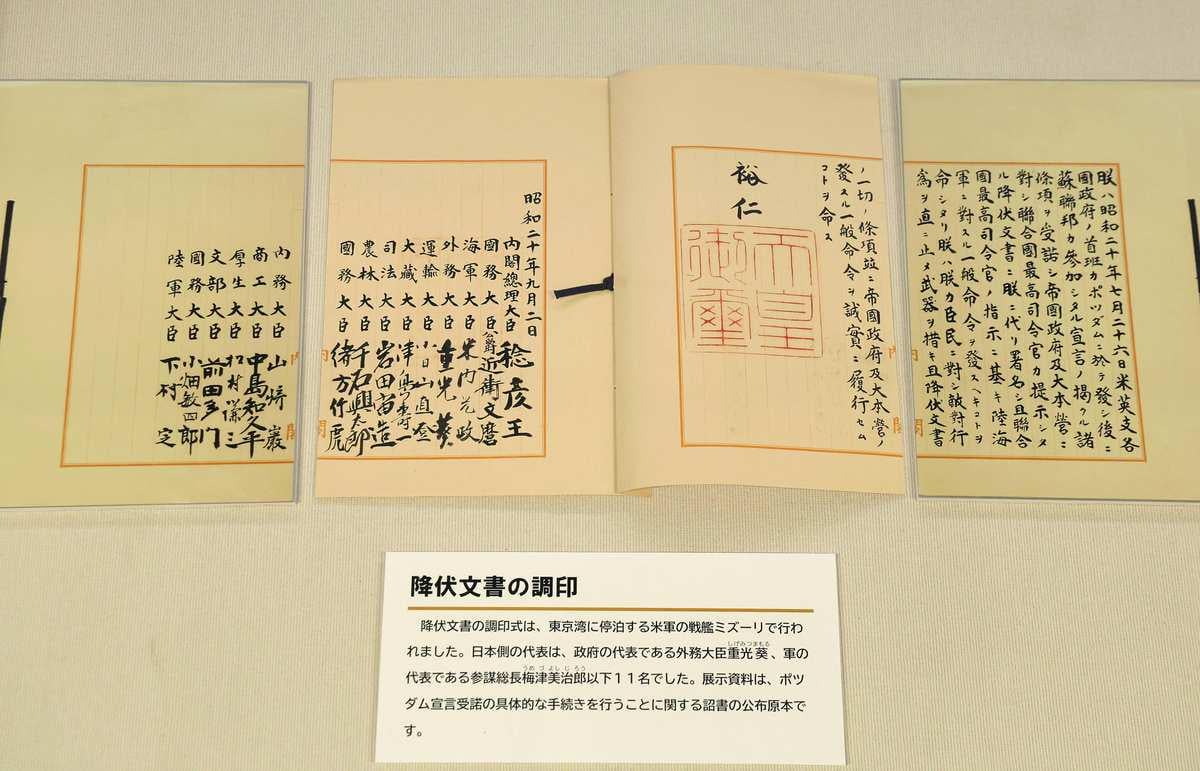 朕ハ昭和二十年七月二十六日米英支各
國政府ノ首班カポツダムニ於テ發シ後ニ
蘇聯邦カ參加シタル宣言ノ揭クル諸
條項ヲ受諾シ帝國政府及大本營ニ
對シ聯合國最高司令官カ提示シタ
ル降伏文書ニ朕ニ代リ署名シ且聯合
國最高司令官ノ指示ニ基キ陸海
軍ニ對スル一般命令ヲ發スヘキコトヲ
命シタリ朕ハ朕カ臣民ニ對シ敵對行
爲ヲ直ニ止メ武器ヲ措キ且降伏文書
ノ一切ノ條項竝ニ帝國政府及大本營ノ
發スル一般命令ヲ誠實ニ履行セム
コトヲ命ス
裕仁
天皇
御璽
昭和二十年九月二日
內閣總理大臣 稔彥王
國務大臣 公爵近衛文麿
海軍大臣 米內光政
外務大臣 重光葵
運輸大臣 小日山直登
大藏大臣 津島壽一
司法大臣 岩田宙造
農林大臣 千石興太郎
國務大臣 緒方竹虎
內務大臣 山崎巖
商工大臣 中島知久平
厚生大臣 松村謙三
文部大臣 前田多門
國務大臣 小畑敏四郎
陸軍大臣 下村定
降伏文書の調印
降伏文書の調印式は、東京湾に停泊する米軍の戦艦ミズーリで行わ
れました。日本側の代表は、政府の代表である外務大臣重光葵、軍の
代表である参謀総長梅津美治郎以下11名でした。展示資料は、ポツ
ダム宣言受諾の具体的な手続きを行うことに関する詔書の公布原本で
す。